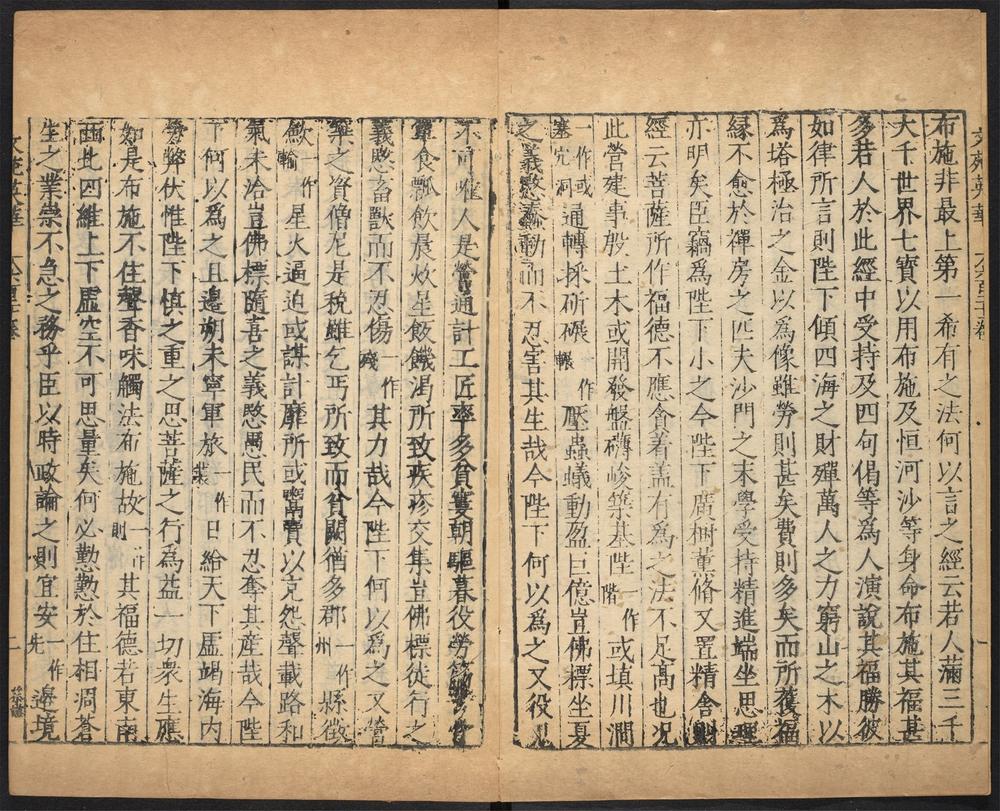 布施非最上第一希有之法何以言之經云若人滿三千
大千世界七寶以用布施及恒河沙等身命布施其福甚
多若人於此經中受持及四句偈等為人演說其福勝彼
如律所言則陛下傾四海之財殫萬人之力窮山之木以
為塔極治之金以為像雖勞則甚矣費則多矣而所獲福
緣不愈於禪房之匹夫沙門之末學受持精進端坐思理
亦明矣臣竊為陛下小之今陛下廣樹薰脩又置精舍則
經云菩薩所作福德不應貪着蓋有為之法不足高也况
此營建事殷土木或開發盤礴峻築基陛一作階或填川澗
一作或塞宂洞通轉採斫碾一作輾壓蟲蟻動盈巨億豈佛標坐夏
之義愍蠢動而不忍害其生哉今陛下何以為之又役
不可唯人是營通計工匠率多貧寠朝驅暮役勞筋
簞食瓢飲晨炊星飯饑渴所致疾疹交集豈佛標徒行之
義愍畜獸而不忍傷一作殘其力哉今陛下何以為之又營
築之資僧尼是稅雖乞丐所致而貧闕猶多郡一作州縣徵
歛一作輸星火逼迫或謀計靡所或鬻賣以充怨聲載路和
氣未洽豈佛標隨喜之義愍愚民而不忍奪其產哉今陛
下何以為之且邊朔未寧軍旅一作裝日給天下虛竭海内
勞弊伏惟陛下慎之重之思菩薩之行為益一切衆生應
如是布施不住聲香味觸法布施故一作則其福德若東南
西北四維上下虛空不可思量矣何必懃懃於住相凋蒼
生之業崇不急之務乎臣以時政論之則宜安一作先邊境